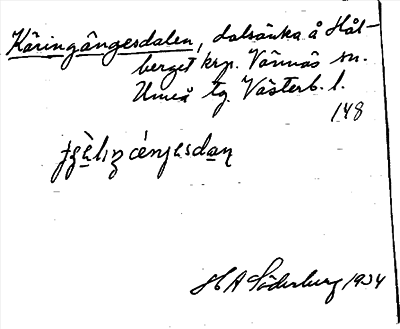 Käringångesdalen, dalsänka å Hål-
berget krp. Vännäs sn.
Umeå tg. Västerb. l.
148
H A Söderberg 1934